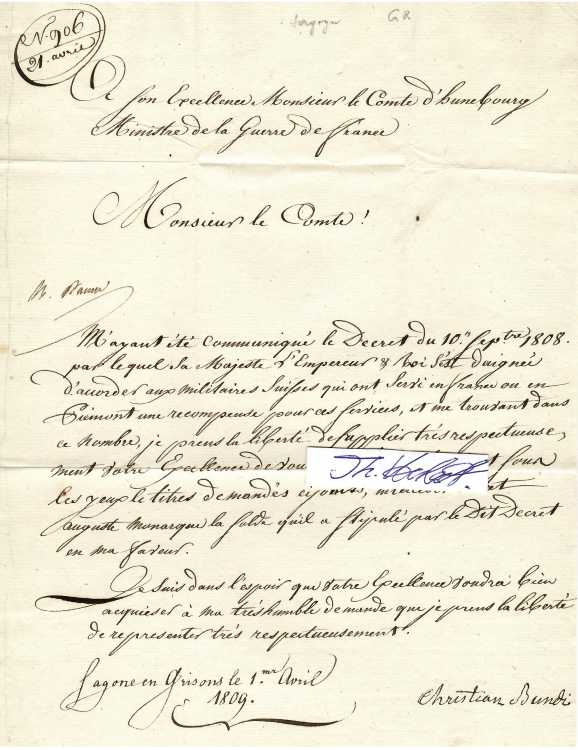 N.° 906
21. avril
GR
A son Excellence Monsieur le Comte d'hunebourg
Ministre de la Guerre de france
Monsieur le Comte!
M'ayant été communiqué le Decret du 10.e Septre 1808.
par lequel Sa Majeste l'Empereur & Roi s'est daignée
d'accorder aux militaires Suisses qui ont Servi en france ou en
Piémont une recompense pour ces Services, et me trouvant dans
ce nombre, je prens la liberté de Supplier trés respectueuse,
ment votre Excellence de sous
les yeux le titres demandés cijoints, et
auguste monarque la Solde qu'il a Stipulé par le Dit Decret
en ma faveur.
Je Suis dans l'espoir que votre Excellence voudra bien
acquieser à ma trés humble demande que je prens la liberté
de representer trés respectueusement.
en Grisons le 1.mr Avril
1809.
Christian Bundi
Th.